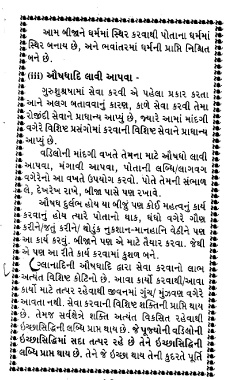 આમ બીજાને ધર્મમાં સ્થિર કરવાથી પોતાના ધર્મમાં
સ્થિર બનાય છે, અને ભવાંતરમાં ધર્મની પ્રાપ્તિ નિશ્ચિત
બને છે.
(iii) ઔષધાદિ લાવી આપવા -
ગુરુશુશ્રૂષામાં સેવા કરવી એ પહેલા પ્રકાર કરતા
આને અલગ બતાવવાનું કારણ, કાળે સેવા કરવી તેમા
રોજીંદી સેવાને પ્રાધાન્ય આપ્યું છે, જ્યારે આમાં માંદગી
વગેરે વિશિષ્ટ પ્રસંગોમાં કરવાની વિશિષ્ટ સેવાને પ્રાધાન્ય
આપ્યું છે.
વડિલોની માંદગી વખતે તેમના માટે ઔષધો લાવી
આપવા, મંગાવી આપવા, પોતાની લબ્ધિ/લાગવગ
વગેરેનો આ વખતે ઉપયોગ કરવો. પોતે તેમની સંભાળ
લે, દેખરેખ રાખે, બીજા પાસે પણ રખાવે.
ઔષધ દુર્લભ હોય યા બીજું પણ કોઈ મહત્વનું કાર્ય
કરવાનું હોય ત્યારે પોતાનો થાક, ધંધો વગેરે ગૌણ
કરીને/જતું કરીને/ થોડુંક નુકશાન-માનહાનિ વેઠીને પણ
આ કાર્ય કરવું. બીજાને પણ એ માટે તૈયાર કરવા. જેથી
એ પણ આ રીતે કાર્ય કરવામાં કુશળ બને.
ગ્લાનાદિની ઔષધાદિ દ્વારા સેવા કરવાનો લાભ
અત્યંત વિશિષ્ટ કોટિનો છે. આવા કાર્યો કરવાથી/આવા
કાર્યો માટે તત્પર રહેવાથી જીવનમાં ગુંચ/ મુંઝવણ વગેરે
આવતા નથી. સેવા કરવાની વિશિષ્ટ શક્તિની પ્રાપ્તિ થાય
છે. તેમજ સર્વક્ષેત્રે શક્તિ અત્યંત વિકસિત રહેવાથી
ઇચ્છાસિદ્ધિની લબ્ધિ પ્રાપ્ત થાય છે. જે પૂજ્યોની વડિલોની
ઇચ્છાસિદ્ધિમાં સદા તત્પર રહે છે તેને ઇચ્છાસિદ્ધિની
લબ્ધિ પ્રાપ્ત થાય છે. તેને જે ઇચ્છા થાય તેની કુદરતે પૂર્તિ